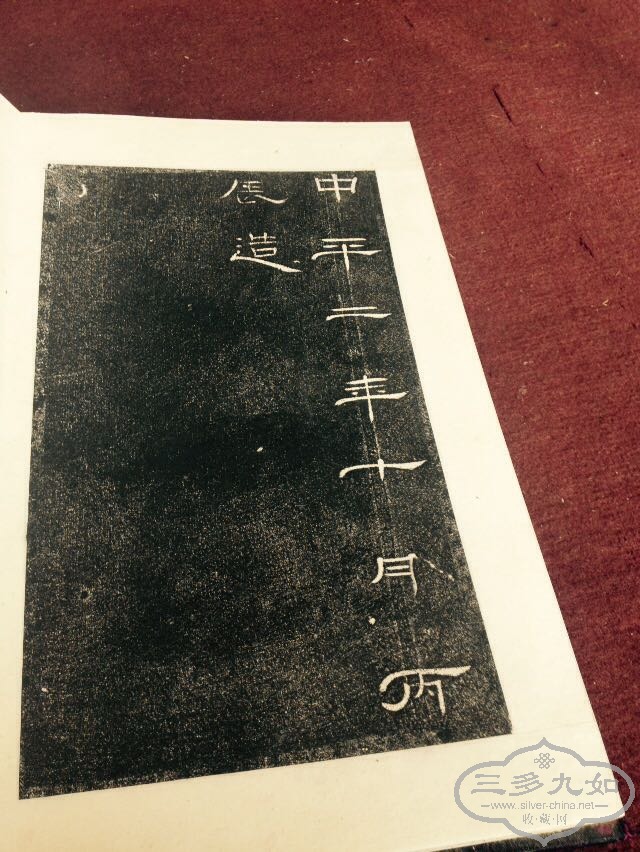 中平二年十月丙
辰造
三多九如
—www.silver-china.net—
收·藏·网